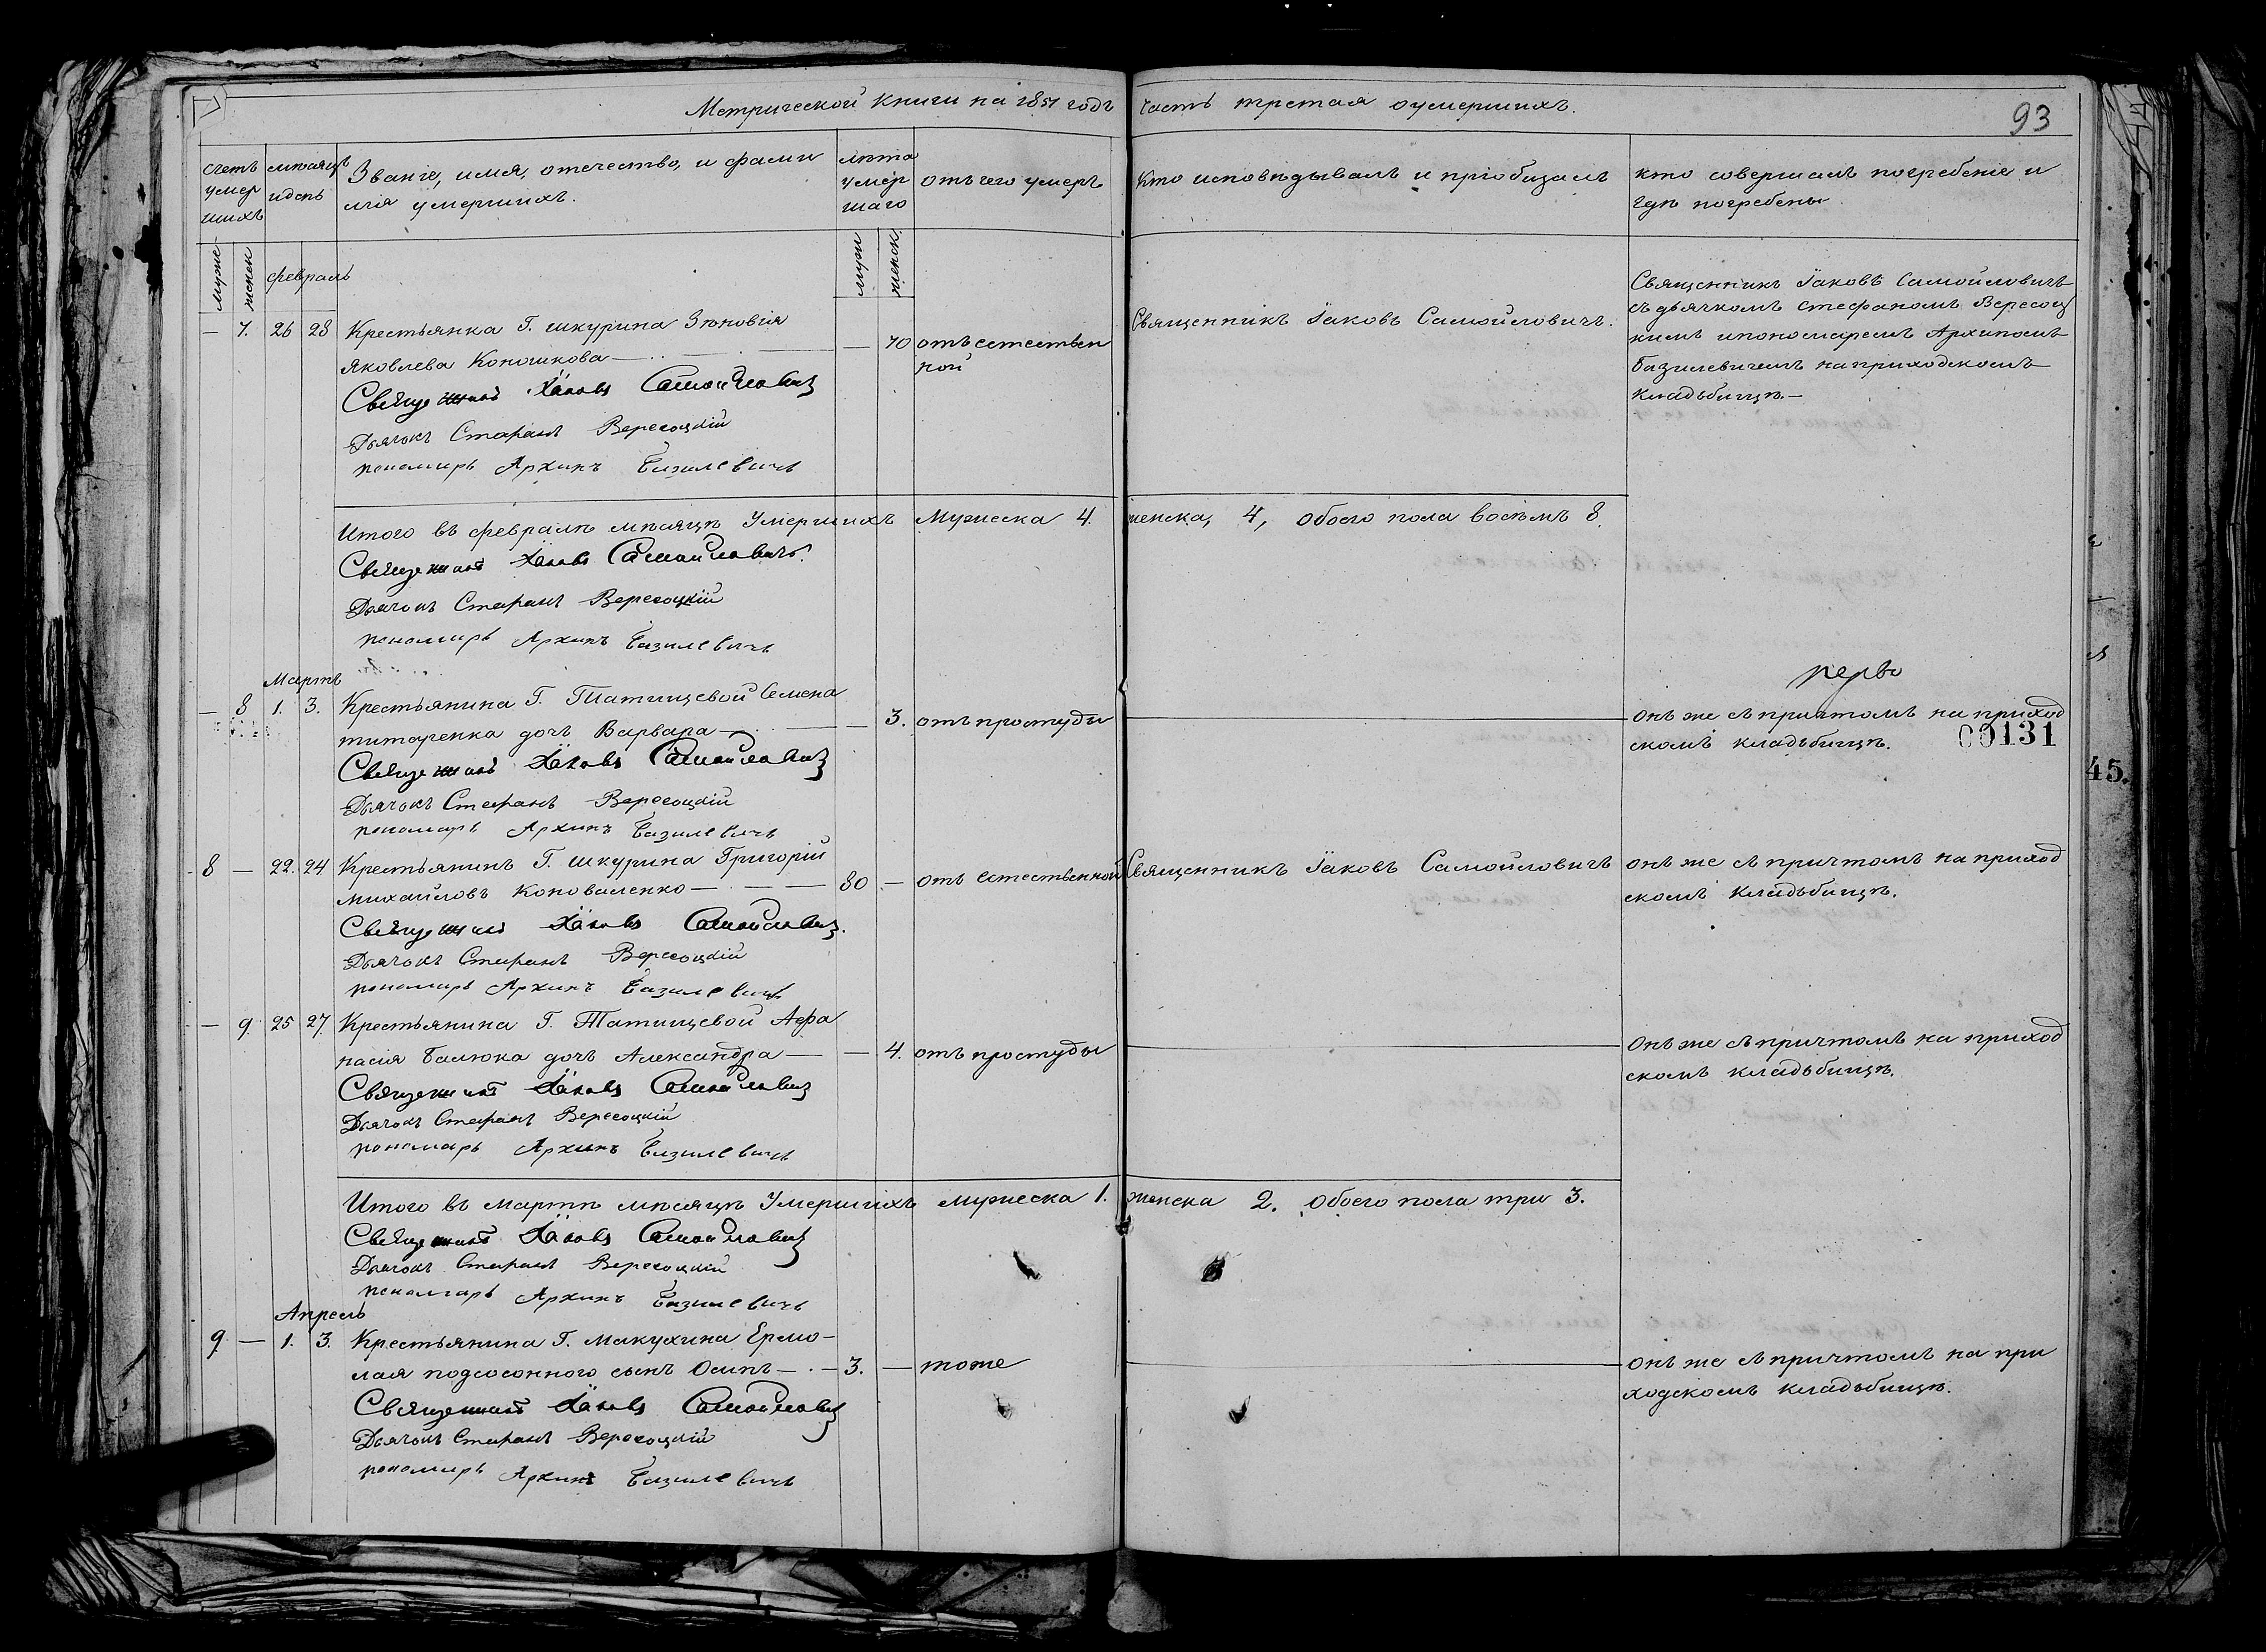 Метрической книги на 1851 годъ часть третая оумершихъ.
93
счетъ умер шихъ
мѣсяцъ идень
Званіе, имя, отечество, и фами
лія умершихъ.
лѣта умер шаго
отъ чего умеръ
кто исповѣдывалъ и пріобщалъ
кто совершалъ погребеніе и
гдѣ погребены
муже
женск
февраль
муж
женск
— 7. 26 28 Крестьянка Г. Шкурина Зѣновія
Яковлева Коношкова — — 70 отъ естествен
ной
Священникъ Іаковъ Самойловичъ.
Священникъ Іаковъ Самойловичъ
съ дьячкомъ Стефаномъ Вересоц
кимъ ипономаремъ Архипомъ
Базилевичемъ на приходскомъ
кладьбищѣ.—
Священникъ Іаковъ Самойловичъ
Дьячокъ Стефанъ Вересоцкій
пономарь Архипъ Базилевичь
Итого въ февралѣ мѣсяцѣ Умершихъ Мужеска 4. женска, 4, обоего пола восѣмъ 8.
Священникъ Іаковъ Самойловичъ.
Дьячокъ Стефанъ Вересоцкій
пономарь Архипъ Базилевичь
Мартъ
— 8 1. 3. Крестьянина Г. Татищевой Семена
титаренка дочь Варвара — — 3. отъ простуды
онъ же съ причтомъ на приход
скомъ кладьбищѣ.
00131
Священникъ Іаковъ Самойловичъ
Дьячокъ Стефанъ Вересоцкій
пономарь Архипъ Базилевичь
45.
8 — 22. 24 Крестьянинъ Г. Шкурина Григорій
михайловъ Коноваленко — 80 — отъ естественной
Священникъ Іаковъ Самойловичъ
онъ же съ причтомъ на приход
скомъ кладьбищѣ.
Священникъ Іаковъ Самойловичъ.
Дьячокъ Стефанъ Вересоцкій
пономарь Архипъ Базилевичь
— 9. 25 27. Крестьянина Г. Татищевой Афа
насія Балюка дочь Александра — — 4. отъ простуды
онъ же съ причтомъ на приход
скомъ кладьбищѣ.
Священникъ Іаковъ Самойловичъ
Дьячокъ Стефанъ Вересоцкій
пономарь Архипъ Базилевичь
Итого въ мартѣ мѣсяцѣ Умершихъ мужеска 1. женска 2. обоего пола три 3.
Священникъ Іаковъ Самойловичъ
Дьячокъ Стефанъ Вересоцкій
пономарь Архипъ Базилевичь
Апрель
9 — 1. 3. Крестьянина Г. Макухина Ермо-
лая подсосонного сынъ Осипъ — 3. — тоже
онъ же съ причтомъ на при
ходскомъ кладьбищѣ.
Священникъ Іаковъ Самойловичъ
Дьячокъ Стефанъ Вересоцкій
пономарь Архипъ Базилевичь